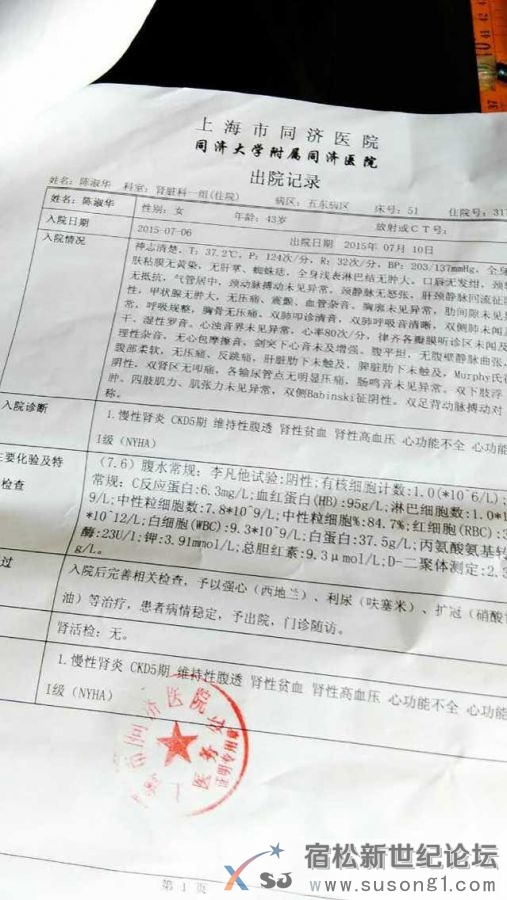 上海市同济医院
同济大学附属同济医院
出院记录
姓名：陈淑华 科室：肾脏科一组(住院) 病区：五东病区 床号：51 住院号：317
姓名：陈淑华 性别：女 年龄：43岁 放射或CT号：
入院日期 2015-07-06 出院日期 2015年 07月 10日
入院情况 神志清楚，T：37.2℃，P：124次/分，R：32次/分，BP：203/137mmHg，全身
肤粘膜无黄染，无肝掌、蜘蛛痣，全身浅表淋巴结无肿大。口唇无发绀，颈
无抵抗，气管居中，颈动脉搏动未见异常。颈静脉无怒张，肝颈静脉回流征
性，甲状腺无肿大，无压痛、震颤、血管杂音。胸廓未见异常，肋间隙未见
常，呼吸规整，胸骨无压痛。双肺叩诊清音，双肺呼吸音清晰，双侧肺未闻及
干、湿性罗音。心浊音界未见异常，心率80次/分，律齐各瓣膜听诊区未闻及
理性杂音，无心包摩擦音，剑突下心音未及增强。腹平坦，无腹壁静脉曲张，
腹部柔软，无压痛、反跳痛，肝脏肋下未触及，脾脏肋下未触及，Murphy氏
阴性，双肾区无叩痛，各输尿管点无明显压痛，肠鸣音未见异常。双下肢浮
肿。四肢肌力、肌张力未见异常，双侧Babinski征阴性。双足背动脉搏动对
称。
入院诊断 1.慢性肾炎 CKD5期 维持性腹透 肾性贫血 肾性高血压 心功能不全 心功能
I级（NYHA）
主要化验及特 （7.6）腹水常规：李凡他试验:阴性;有核细胞计数:1.0(*10^6/L)
检查 常规：C反应蛋白:6.3mg/L;血红蛋白(HB):95g/L;淋巴细胞数:1.0*1
9/L;中性粒细胞数:7.8*10^9/L;中性粒细胞%:84.7%;红细胞(RBC):3
*10^12/L;白细胞(WBC):9.3*10^9/L;白蛋白:37.5g/L;丙氨酸氨基转
酶:23U/l;钾:3.91mmol/L;总胆红素:9.3μmol/L;D-二聚体测定:2.3
g/L。
过 入院后完善相关检查，予以强心（西地兰）、利尿（呋塞米）、扩冠（硝酸甘
油）等治疗，患者病情稳定，予出院，门诊随访。
肾活检：无。
1.慢性肾炎 CKD5期 维持性腹透 肾性贫血 肾性高血压 心功能不全 心功能
I级（NYHA）
同济医院
医务处
证明专用章
第 1 页
宿松新世纪论坛
www.susong1.com